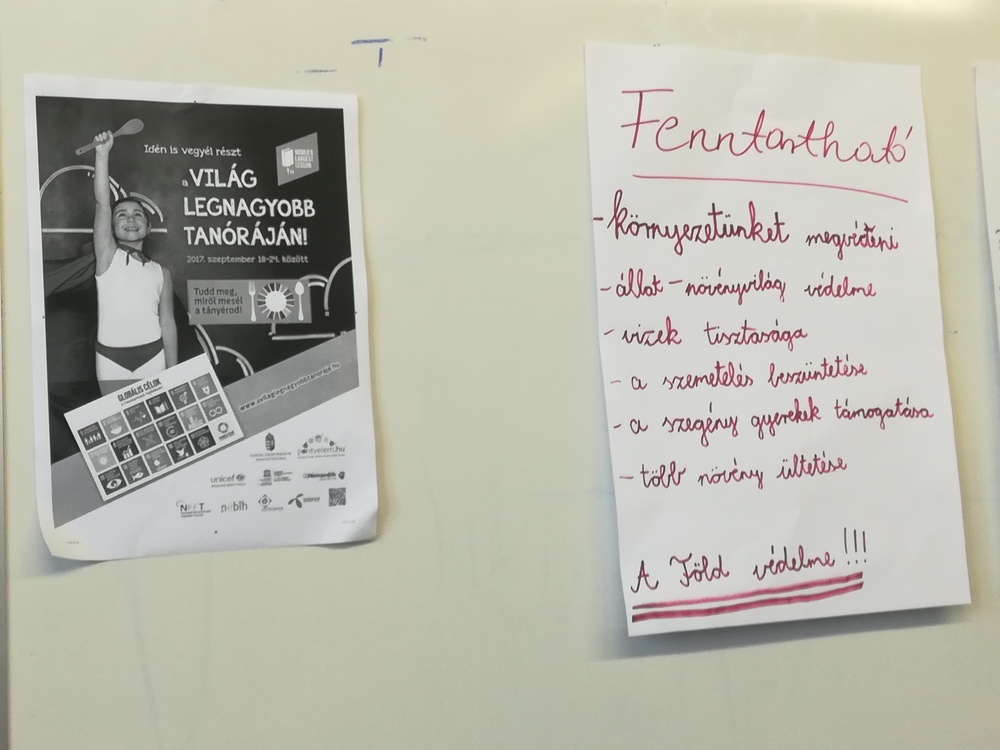 Idén is vegyél részt
a VILÁG
LEGNAGYOBB
TANÓRÁJÁN!
2017. szeptember 18-24. között
WORLD'S
LARGEST
LESSON
Tudd meg,
miről mesél
a tányérod!
GLOBÁLIS CÉLOK
www.avilaglegnagyobbtanoraja.hu
pontvelem.hu
unicef
NEFT
nébih
telenor
Fenntartható
- környezetünket megvédeni
- állat - növényvilág védelme
- vizek tisztasága
- a szemetelés beszüntetése
- a szegény gyerekek támogatása
- több növény ültetése
A Föld védelme !!!